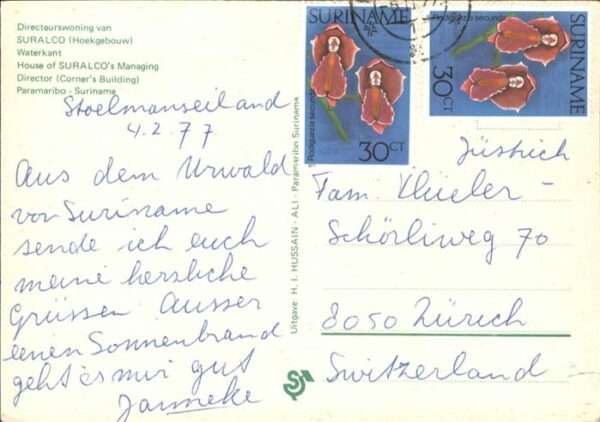 Directeurswoning van
SURALCO (Hoekgebouw)
Waterkant
House of SURALCO's Managing
Director (Corner's Building)
Paramaribo - Suriname
Stoelmanseiland
4.2.77
Aus dem Urwald
von Suriname
sende ich euch
meine herzliche
Grüssen Ausser
einen Sonnenbrand
geht es mir gut
Janneke
Uitgave H. I. HUSSAIN - ALI - Paramaribo Suriname
SURINAME
Rodriguezia secunda
30CT
SURINAME
Rodriguezia secunda
30CT
Fam.
Schörliweg 70
8050 Zürich
Switzerland